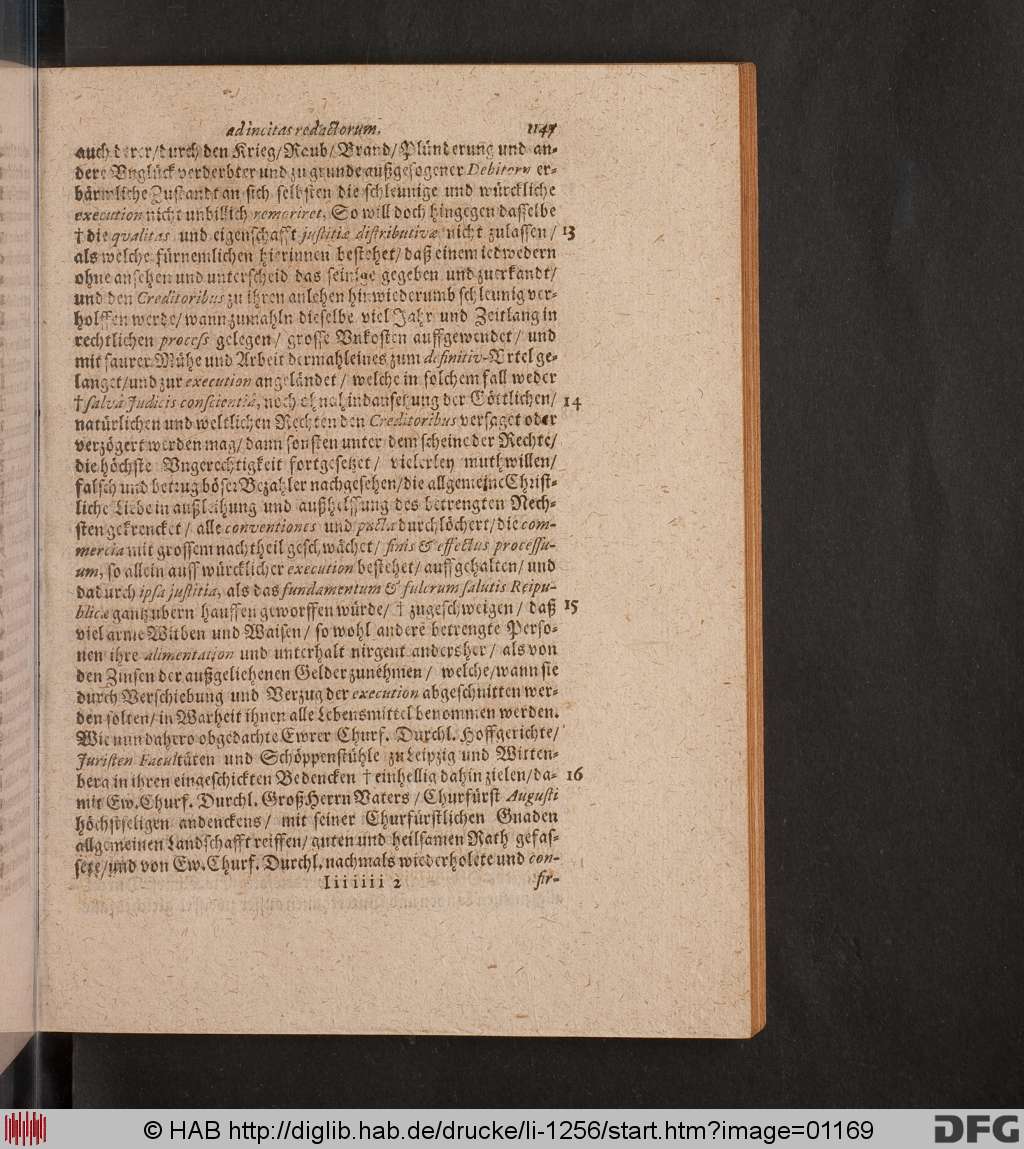 ad incitas redactorum. 1147
auch derer/durch den Krieg/Raub/Brand/Plünderung und an-
dere Vnglück verderbter und zu grunde außgesogener Debitorn er-
bärmliche Zustandt an sich selbsten die schleunige und würckliche
execution nicht unbillich remoriret, So will doch hingegen dasselbe
† die qvalitas und eigenschafft justitiæ distributivæ nicht zulassen/ 13
als welche fürnemlichen hierinnen bestehet/daß einem iedwedern
ohne ansehen und unterscheid das seinige gegeben und zuerkandt/
und den Creditoribus zu ihren anlehen hinwiederumb schleunig ver-
holffen werde/wann zumahln dieselbe viel Jahr und Zeitlang in
rechtlichen process gelegen/ grosse Vnkosten auffgewendet/ und
mit saurer Mühe und Arbeit dermahleines zum definitiv-Vrtel ge-
langet/und zur execution angeländet/ welche in solchem fall weder
† salvâ Judicis conscientiâ, noch ohnahindansetzung der Göttlichen/ 14
natürlichen und weltlichen Rechten den Creditoribus versaget oder
verzögert werden mag/dann sonsten unter dem scheine der Rechte/
die höchste Vngerechtigkeit fortgesetzet/ vielerley muthwillen/
falsch und betrug böser Bezahler nachgesehen/die allgemeine Christ-
liche Liebe in außleihung und außhelffung des betrengten Nech-
sten gekrencket/ alle conventiones und pacta durchlöchert/die com-
mercia mit grossem nachtheil geschwächet/ finis & effectus processu-
um, so allein auff würcklicher execution bestehet/auffgehalten/und
dadurch ipsa justitia, als das fundamentum & fulcrum salutis Reipu-
blicæ gantz ubern hauffen geworffen würde/ † zugeschweigen/ daß 15
viel arme Witben und Waisen/ so wohl andere betrengte Perso-
nen ihre alimentation und unterhalt nirgent andersher/ als von
den Zinsen der außgelichenen Gelder zunehmen/ welche/wann sie
durch Verschiebung und Verzug der execution abgeschnitten wer-
den solten/in Warheit ihnen alle Lebensmittel benommen werden.
Wie nun dahero obgedachte Ewrer Churf. Durchl. Hoffgerichte/
Juristen Facultäten und Schöppenstühle zu Leipzig und Witten-
berg in ihren eingeschickten Bedencken † einhellig dahin zielen/da- 16
mit Ew. Churf. Durchl. Groß Herrn Vaters/ Churfürst Augusti
höchstseligen andenckens/ mit seiner Churfürstlichen Gnaden
allgemeinen Landschafft reiffen/guten und heilsamen Rath gefas-
sete/und von Ew. Churf. Durchl. nachmals wiederholete und con-
Iiiiiii 2 fir-
© HAB http://diglib.hab.de/drucke/li-1256/start.htm?image=01169
DFG